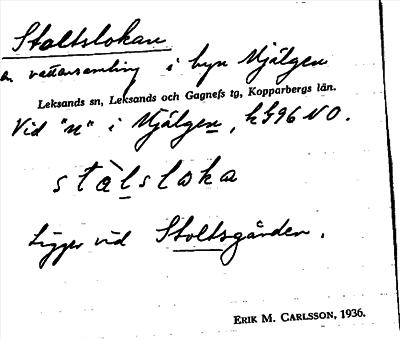 Stoltslokan
en vattensamling i byn Mjälgen
Leksands sn, Leksands och Gagnefs tg, Kopparbergs län.
Vid "n" i Mjälgen, kb 96 N O.
stàlsloka
Ligger vid Stoltsgården.
ERIK M. CARLSSON, 1936.